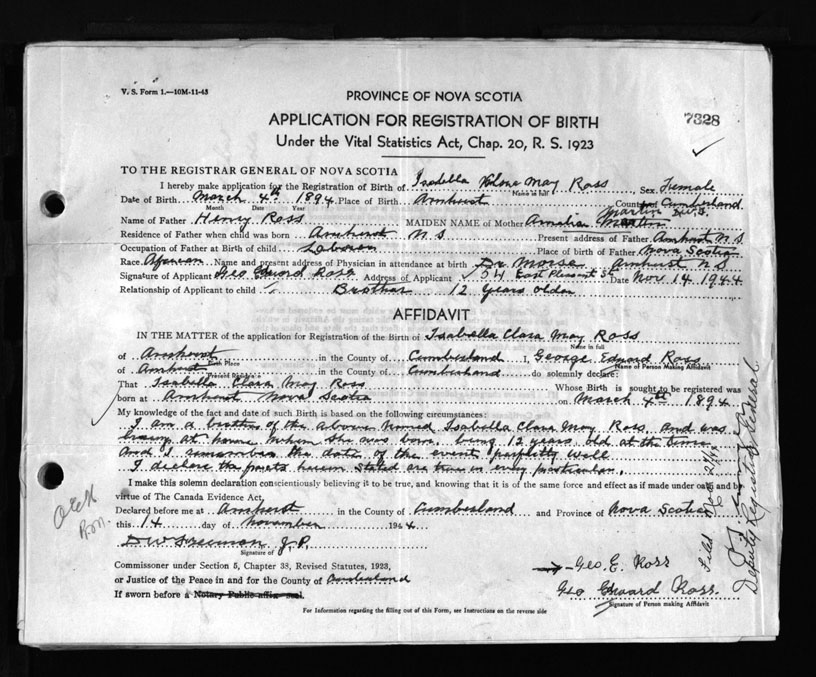 V. S. Form 1.—10M-11-43
PROVINCE OF NOVA SCOTIA
APPLICATION FOR REGISTRATION OF BIRTH
7328
Under the Vital Statistics Act, Chap. 20, R. S. 1923
TO THE REGISTRAR GENERAL OF NOVA SCOTIA
I hereby make application for the Registration of Birth of Isabella May Ross Sex Female
Name in full
Date of Birth March 4th 1894 Place of Birth Amherst County Cumberland
Month Date Year
Martin
Name of Father Henry Ross MAIDEN NAME of Mother Amelia
Residence of Father when child was born Amherst N S Present address of Father Amherst N S
Occupation of Father at Birth of child Laborer Place of birth of Father Nova Scotia
Race African Name and present address of Physician in attendance at birth Dr Morse Amherst N S
Signature of Applicant Geo Edward Ross Address of Applicant 54 East Pleasant St Date Nov 14 1944
Relationship of Applicant to child Brother 12 years older
AFFIDAVIT
IN THE MATTER of the application for Registration of the Birth of Isabella Clara May Ross
Name in full
of Amherst in the County of Cumberland I, George Edward Ross
Birth Place Name of Person Making Affidavit
of Amherst in the County of Cumberland do solemnly declare:
Present Residence
That Isabella Clara May Ross Whose Birth is sought to be registered was
born at Amherst Nova Scotia on March 4th 1894
My knowledge of the fact and date of such Birth is based on the following circumstances:
I am a brother of the above named Isabella Clara May Ross, and was
living at home when she was born, being 12 years old at the time
and I remember the date of the event perfectly well
I declare the facts herein stated are true in every particular.
I make this solemn declaration conscientiously believing it to be true, and knowing that it is of the same force and effect as if made under oath and by
virtue of The Canada Evidence Act,
Declared before me at Amherst in the County of Cumberland and Province of Nova Scotia
this 14 day of November 1944
D W Freeman J. P.
Signature of
Commissioner under Section 5, Chapter 38, Revised Statutes, 1923,
Geo. E. Ross
or Justice of the Peace in and for the County of Cumberland
Geo Edward Ross.
If sworn before a Notary Public affix seal.
Signature of Person making Affidavit
For Information regarding the filling out of this Form, see Instructions on the reverse side
Filed Nov 21/44
Deputy Registrar General